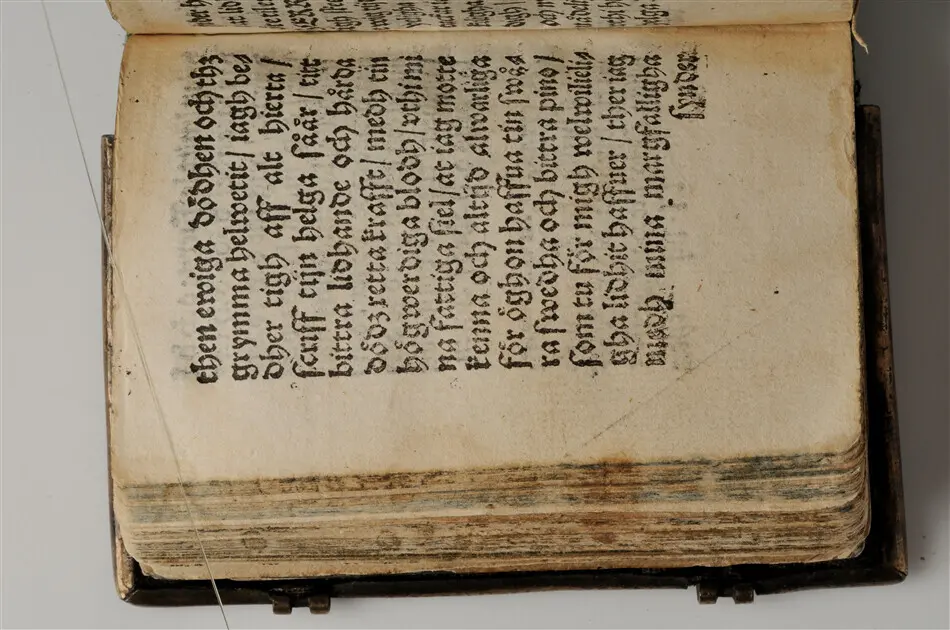 then ewiga dödhen och thz
grymma helwetit / iagh be⸗
dher tigh aff alt hierta /
scriff tijn helga såår / tin
bittra lidhande och hårda
dödz retta krafft / medh tin
högwerdiga blodh / vthi mi
na fattiga siel / at iag motte
kenna och altijd alwarliga
för öghon haffua tin swå⸗
ra swedha och bittra pino /
som tu för migh welwilieli⸗
gha lidhit haffuer / ther iag
medh mina margfalligha
synder